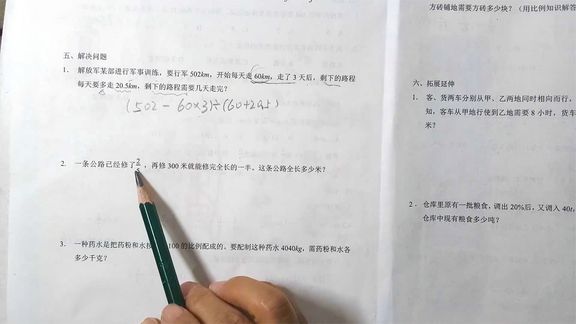 五、解决问题
1. 解放军某部进行军事训练,要行军 502km,开始每天走 60km,走了 3 天后,剩下的路程
每天要多走 20.5km,剩下的路程需要几天走完?
(502 - 60×3)÷(60+20.5)
2. 一条公路已经修了2,再修 300 米就能修完全长的一半。这条公路全长多少米?
3. 一种药水是把药粉和水按 100 的比例配成的。要配制这种药水 4040kg,需药粉和水各
多少千克?
方砖铺地需要方砖多少块?(用比例知识解答
六、拓展延伸
1. 客、货两车分别从甲、乙两地同时相向而行,
知,客车从甲地行使到乙地需要 8 小时,货车
米?
2. 仓库里原有一批粮食,调出 20%后,又调入 40t,
仓库中现有粮食多少吨?